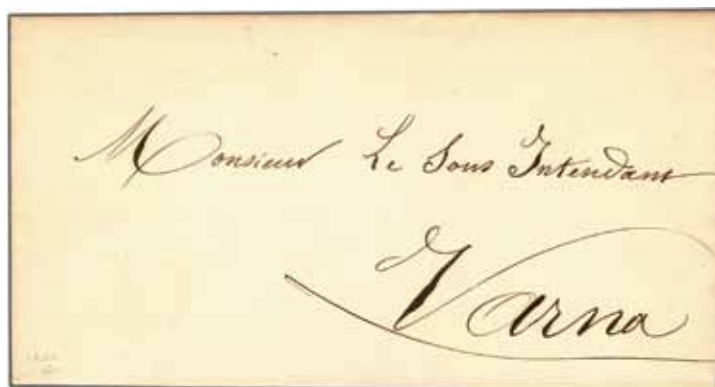 Monsieur Le Sous Intendant
Varna